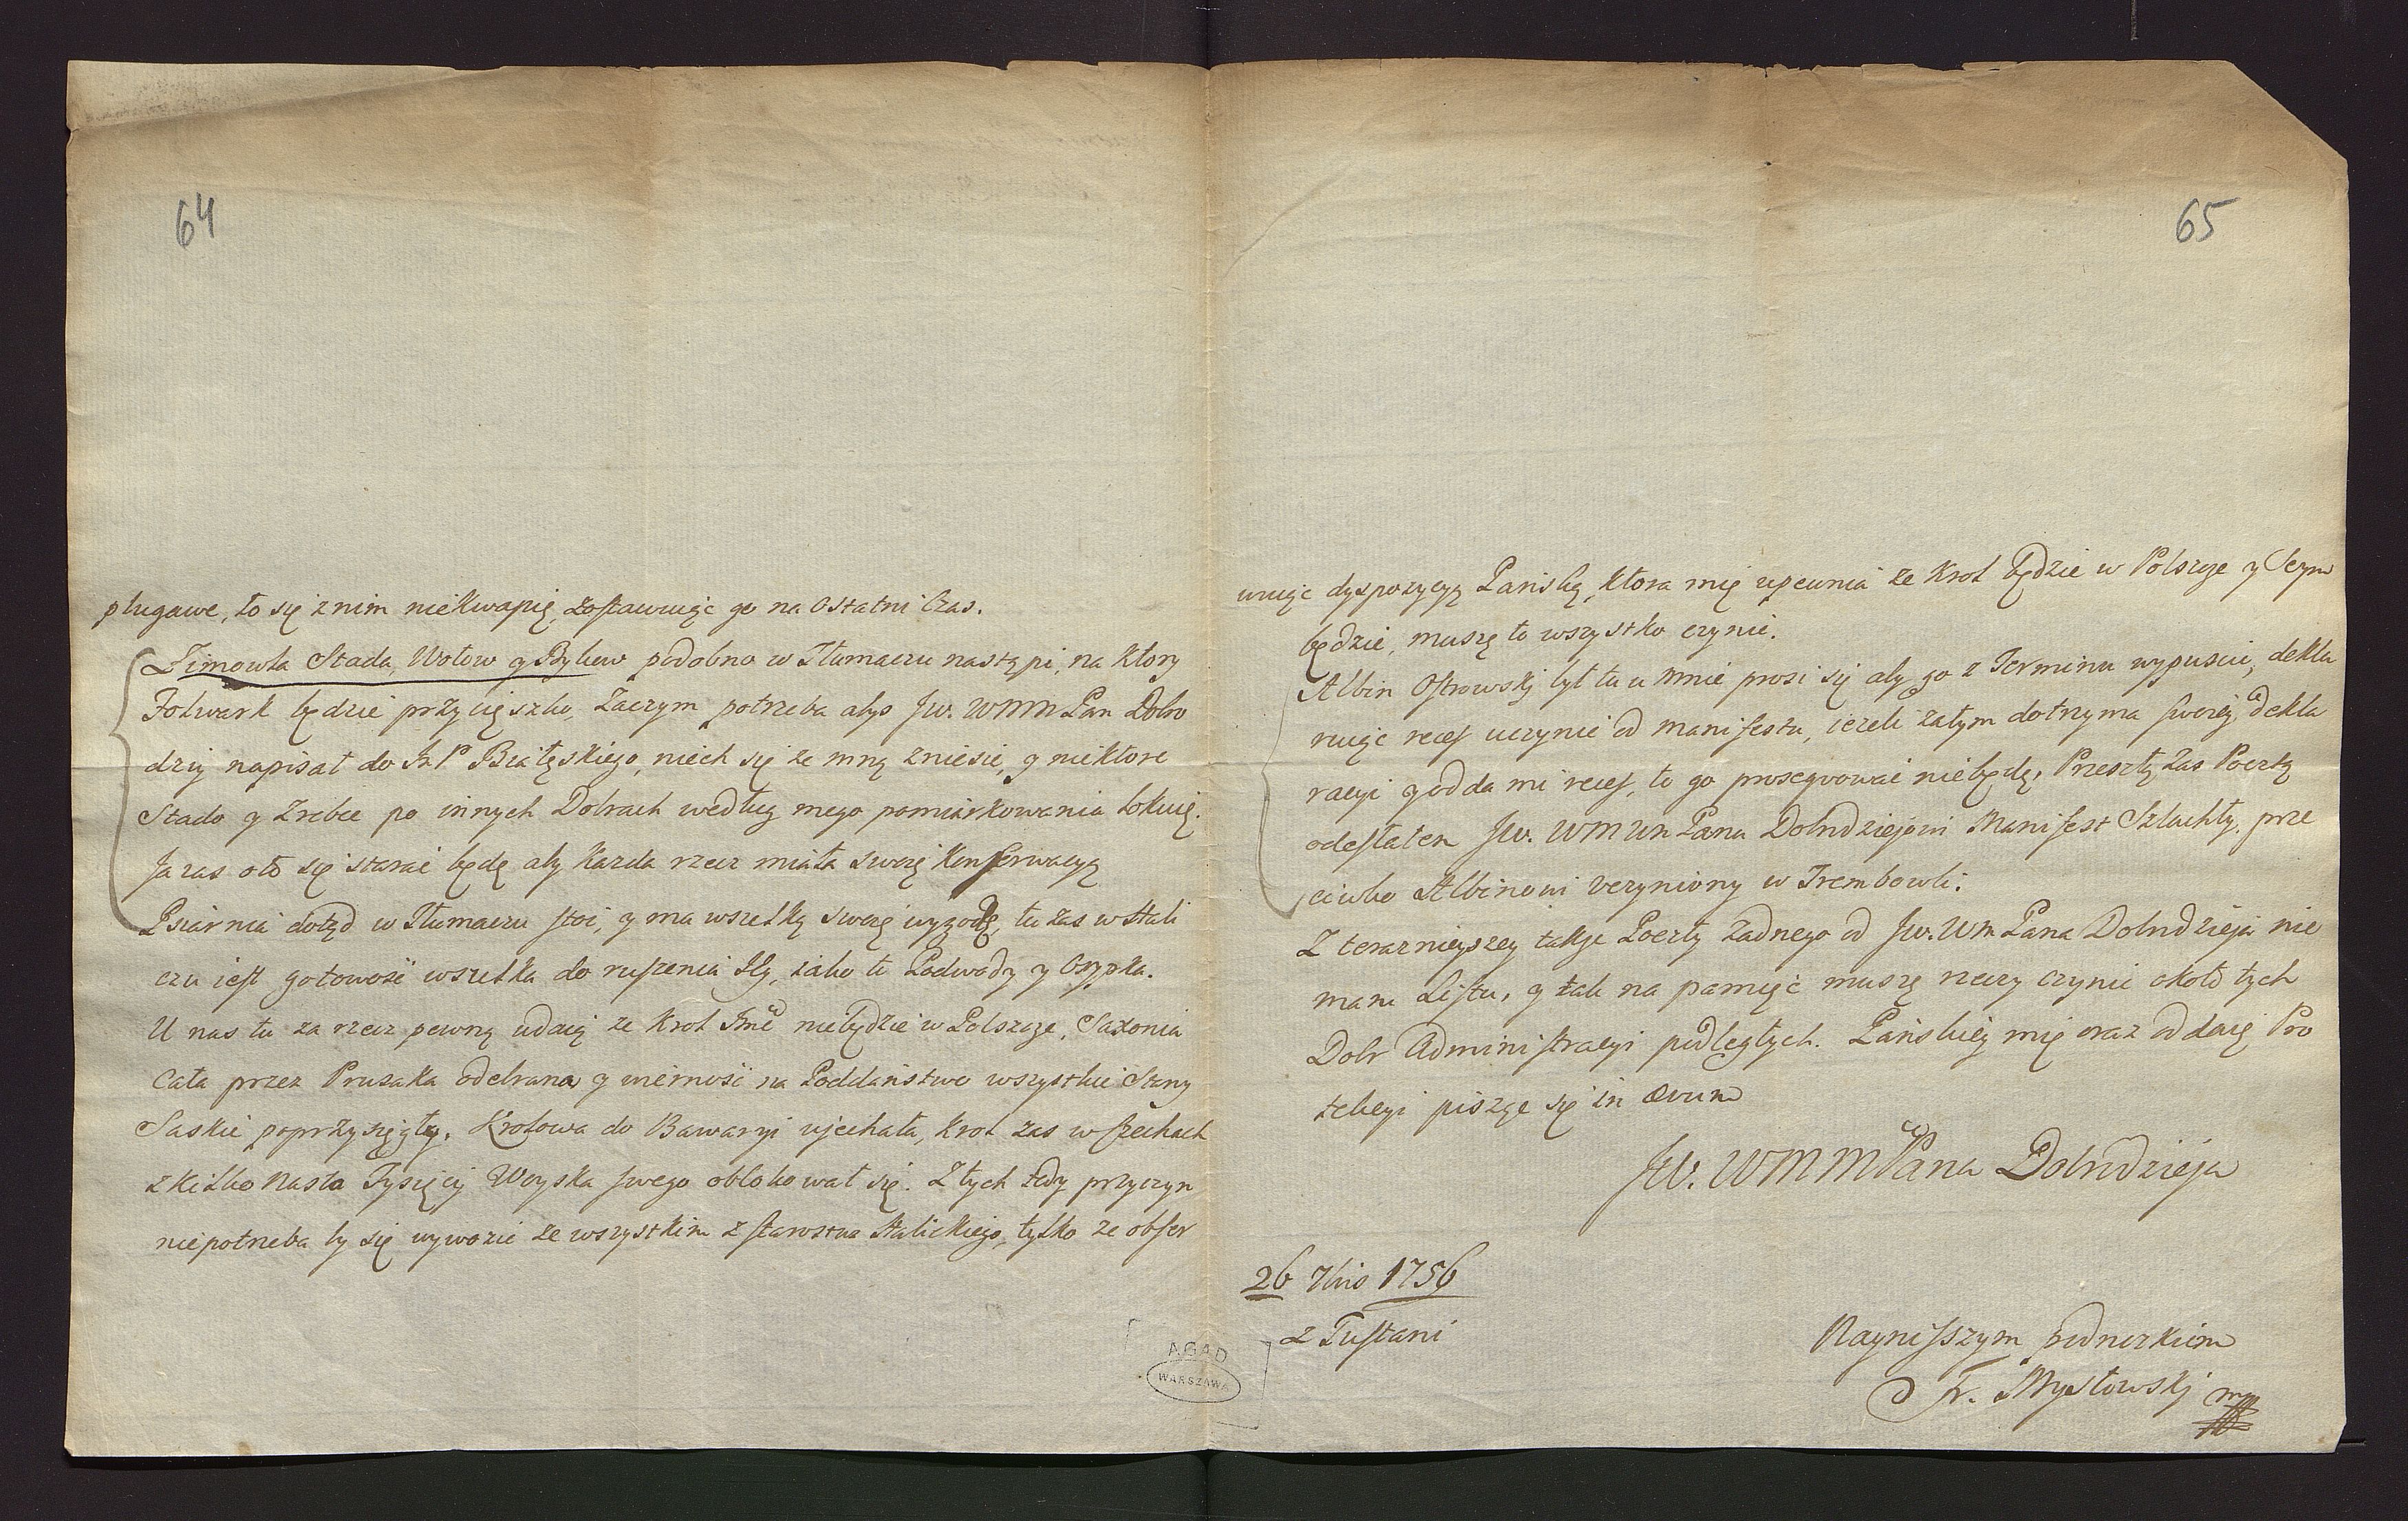 64
pługawe, to się z nim niekwapię, zostawuiąc go na ostatni Czas.
Zimowla Stada, Wołow y Byków podobno w Tłumaczu nastąpi, na ktory
Folwark będzie przycięszko, Zaczym potrzeba abyś Jw. WMM Pan Dobro
dziy napisał do JP Białęskiego, niech się ze mną zniesie, y niektore
Stado y Zrebce po innych Dobrach według mego pomiarkowania lokuię.
Ja zas o to się starać będę aby Kazda rzecz miała swoię Konserwacyą
Psiarnia dotąd w Tłumaczu stoi, y ma wszelką swoię wygodę, tu zas w Hali
czu iest gotowość wszelka do ruszenia się, iako to Podwody y Osypka.
U nas tu za rzecz pewną udaią ze Krol Jmć niebędzie w Polszcze, Saxonia
Cała przez Prusaka odebrana y wierność na Poddaństwo wszystkie Stany
Saskie poprzysięgły. Krolowa do Bawaryi ujechała, Krol zas w Czechach
z kilko nasta Tysięcy Woyska swego oblokował się. Z tych tedy przyczyn
niepotrzeba by się wywozić ze wszystkim z starostwa Halickiego, tylko ze obser
AGAD
WARSZAWA
65
wuiąc dyspozycyą Pańską, ktora mię upewnia ze Krol będzie w Polszcze y Seym
będzie, muszę to wszystko czynić.
Albin Ostrowskj był tu u mnie prosi się aby go z Terminu wypuscić, dekla
ruiąc reces uczynić od manifestu, iezeli zatym dotrzyma swoiey dekla
racyi y odda mi reces, to go prosequować niebędę, Przeszłą zas Pocztą
odesłałem Jw. WMMPana Dobrodziejowi Manifest Szlachty, prze
ciwko Albinowi uczyniony w Trembowli.
Z terazniejszey takze Poczty Zadnego od Jw. WMPana Dobrodzieja nie
mam Listu, y tak na pamięć muszę rzeczy czynić około tych
Dobr Administracyi podległych. Pańskiey mię oraz oddaię Pro
tekcyi piszęc się in ævum
Jw. WMMPana Dobrodzieja
26 7bris 1756
z Tustani
Nayniższym podnożkiem
Fr. Mysłowskj mp